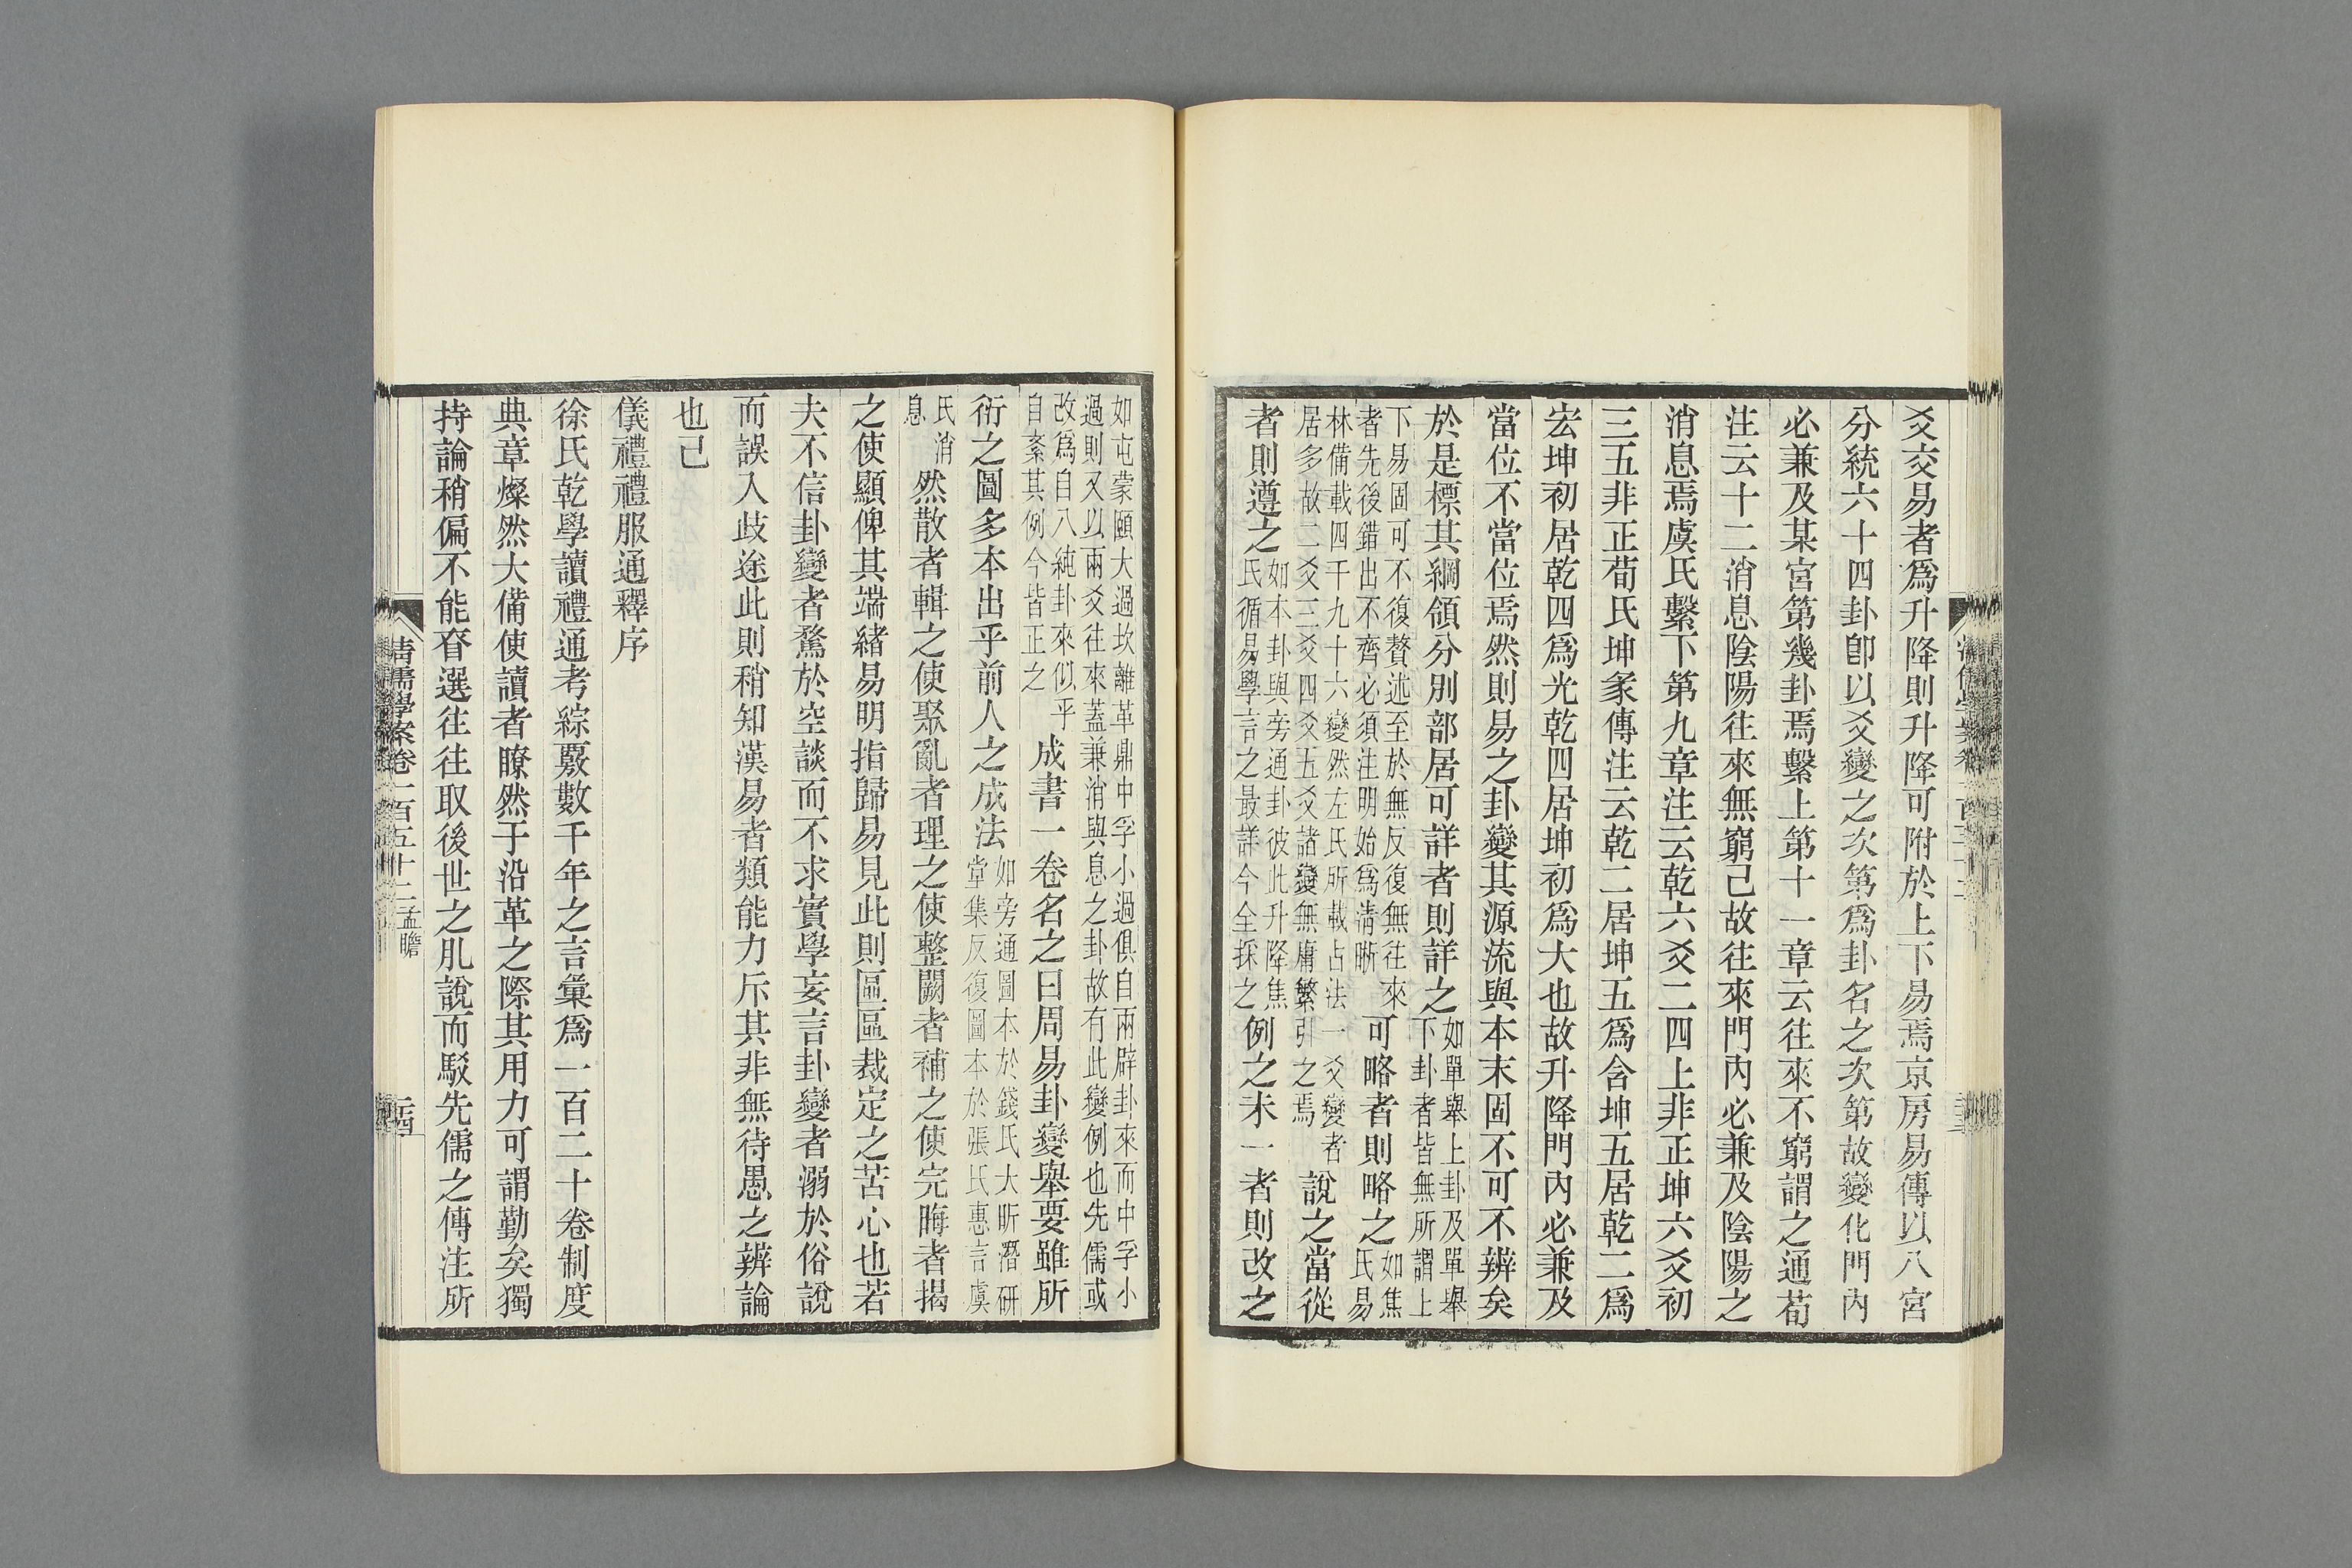 爻交易者爲升降則升降可附於上下易焉京房易傳以八宮
分統六十四卦卽以爻變之次第爲卦名之次第故變化門內
必兼及某宮第幾卦焉繫上第十一章云往來不窮謂之通荀
注云十二消息陰陽往來無窮已故往來門內必兼及陰陽之
消息焉虞氏繫下第九章注云乾六爻二四上非正坤六爻初
三五非正荀氏坤彖傳注云乾二居坤五爲含坤五居乾二爲
宏坤初居乾四爲光乾四居坤初爲大也故升降門內必兼及
當位不當位焉然則易之卦變其源流與本末固不可不辨矣
於是標其綱領分別部居可詳者則詳之如單舉上卦及單舉下卦者皆無所謂上
下易固可不復贅述至於無反復無往來者先後錯出不齊必須注明始爲淸晰可略者則略之如焦氏易
林備載四千九十六變然左氏所載占法一爻變者居多故二爻三爻四爻五爻諸變無庸繁引之焉說之當從
者則遵之如本卦與旁通卦彼此升降焦氏循易學言之最詳今全採之例之未一者則改之
如屯蒙頤大過坎離革鼎中孚小過俱自兩辟卦來而中孚小過則又以兩爻往來蓋兼消與息之卦故有此變例也先儒或
改爲自八純卦來似乎自紊其例今皆正之成書一卷名之曰周易卦變舉要雖所
衍之圖多本出乎前人之成法如旁通圖本於錢氏大昕潛研堂集反復圖本於張氏惠言虞
氏消息然散者輯之使聚亂者理之使整闕者補之使完晦者揭
之使顯俾其端緒易明指歸易見此則區區裁定之苦心也若
夫不信卦變者騖於空談而不求實學妄言卦變者溺於俗說
而誤入歧途此則稍知漢易者類能力斥其非無待愚之辨論
也已
儀禮禮服通釋序
徐氏乾學讀禮通考綜覈數千年之言彙爲一百二十卷制度
典章燦然大備使讀者瞭然于沿革之際其用力可謂勤矣獨
持論稍偏不能慎選往往取後世之肌說而駁先儒之傳注所
清儒學案卷一百五十二 孟瞻